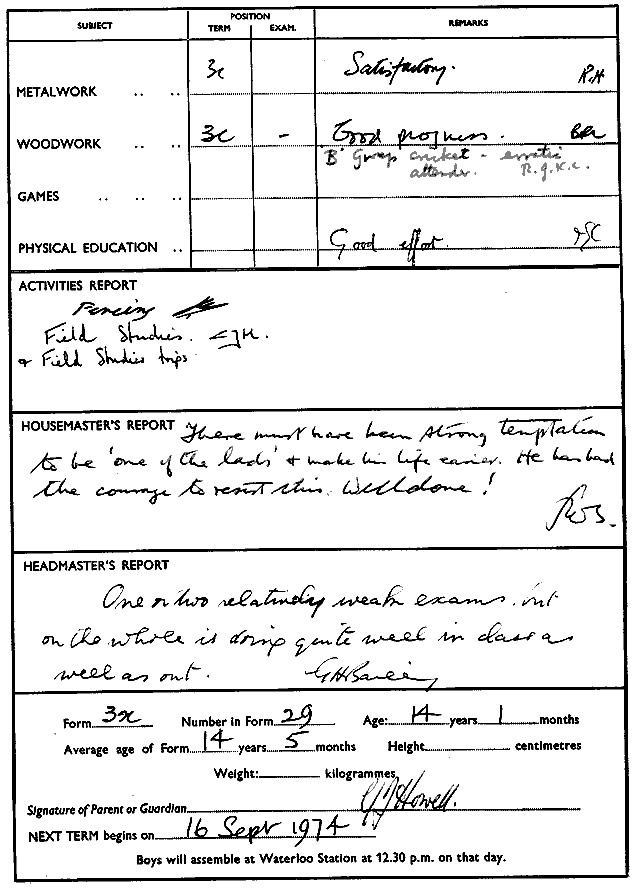 SUBJECT POSITION REMARKS
TERM EXAM.
METALWORK .. .. 3c Satisfactory. R.H
WOODWORK .. .. 3c – Good progress.
'B' Group cricket – erratic
attender. R.J.K.C.
GAMES .. .. ..
PHYSICAL EDUCATION .. Good effort.
ACTIVITIES REPORT
Fencing
Field Studies.
& Field Studies trips.
HOUSEMASTER'S REPORT There must have been strong temptation
to be 'one of the lads' & make his life easier. He has had
the courage to resist this. Well done!
HEADMASTER'S REPORT
One or two relatively weak exams, but
on the whole is doing quite well in class as
well as out.
Form 3x Number in Form 29 Age: 14 years 1 months
Average age of Form 14 years 5 months Height centimetres
Weight: kilogrammes
Signature of Parent or Guardian Howell.
NEXT TERM begins on 16 Sept 1974
Boys will assemble at Waterloo Station at 12.30 p.m. on that day.